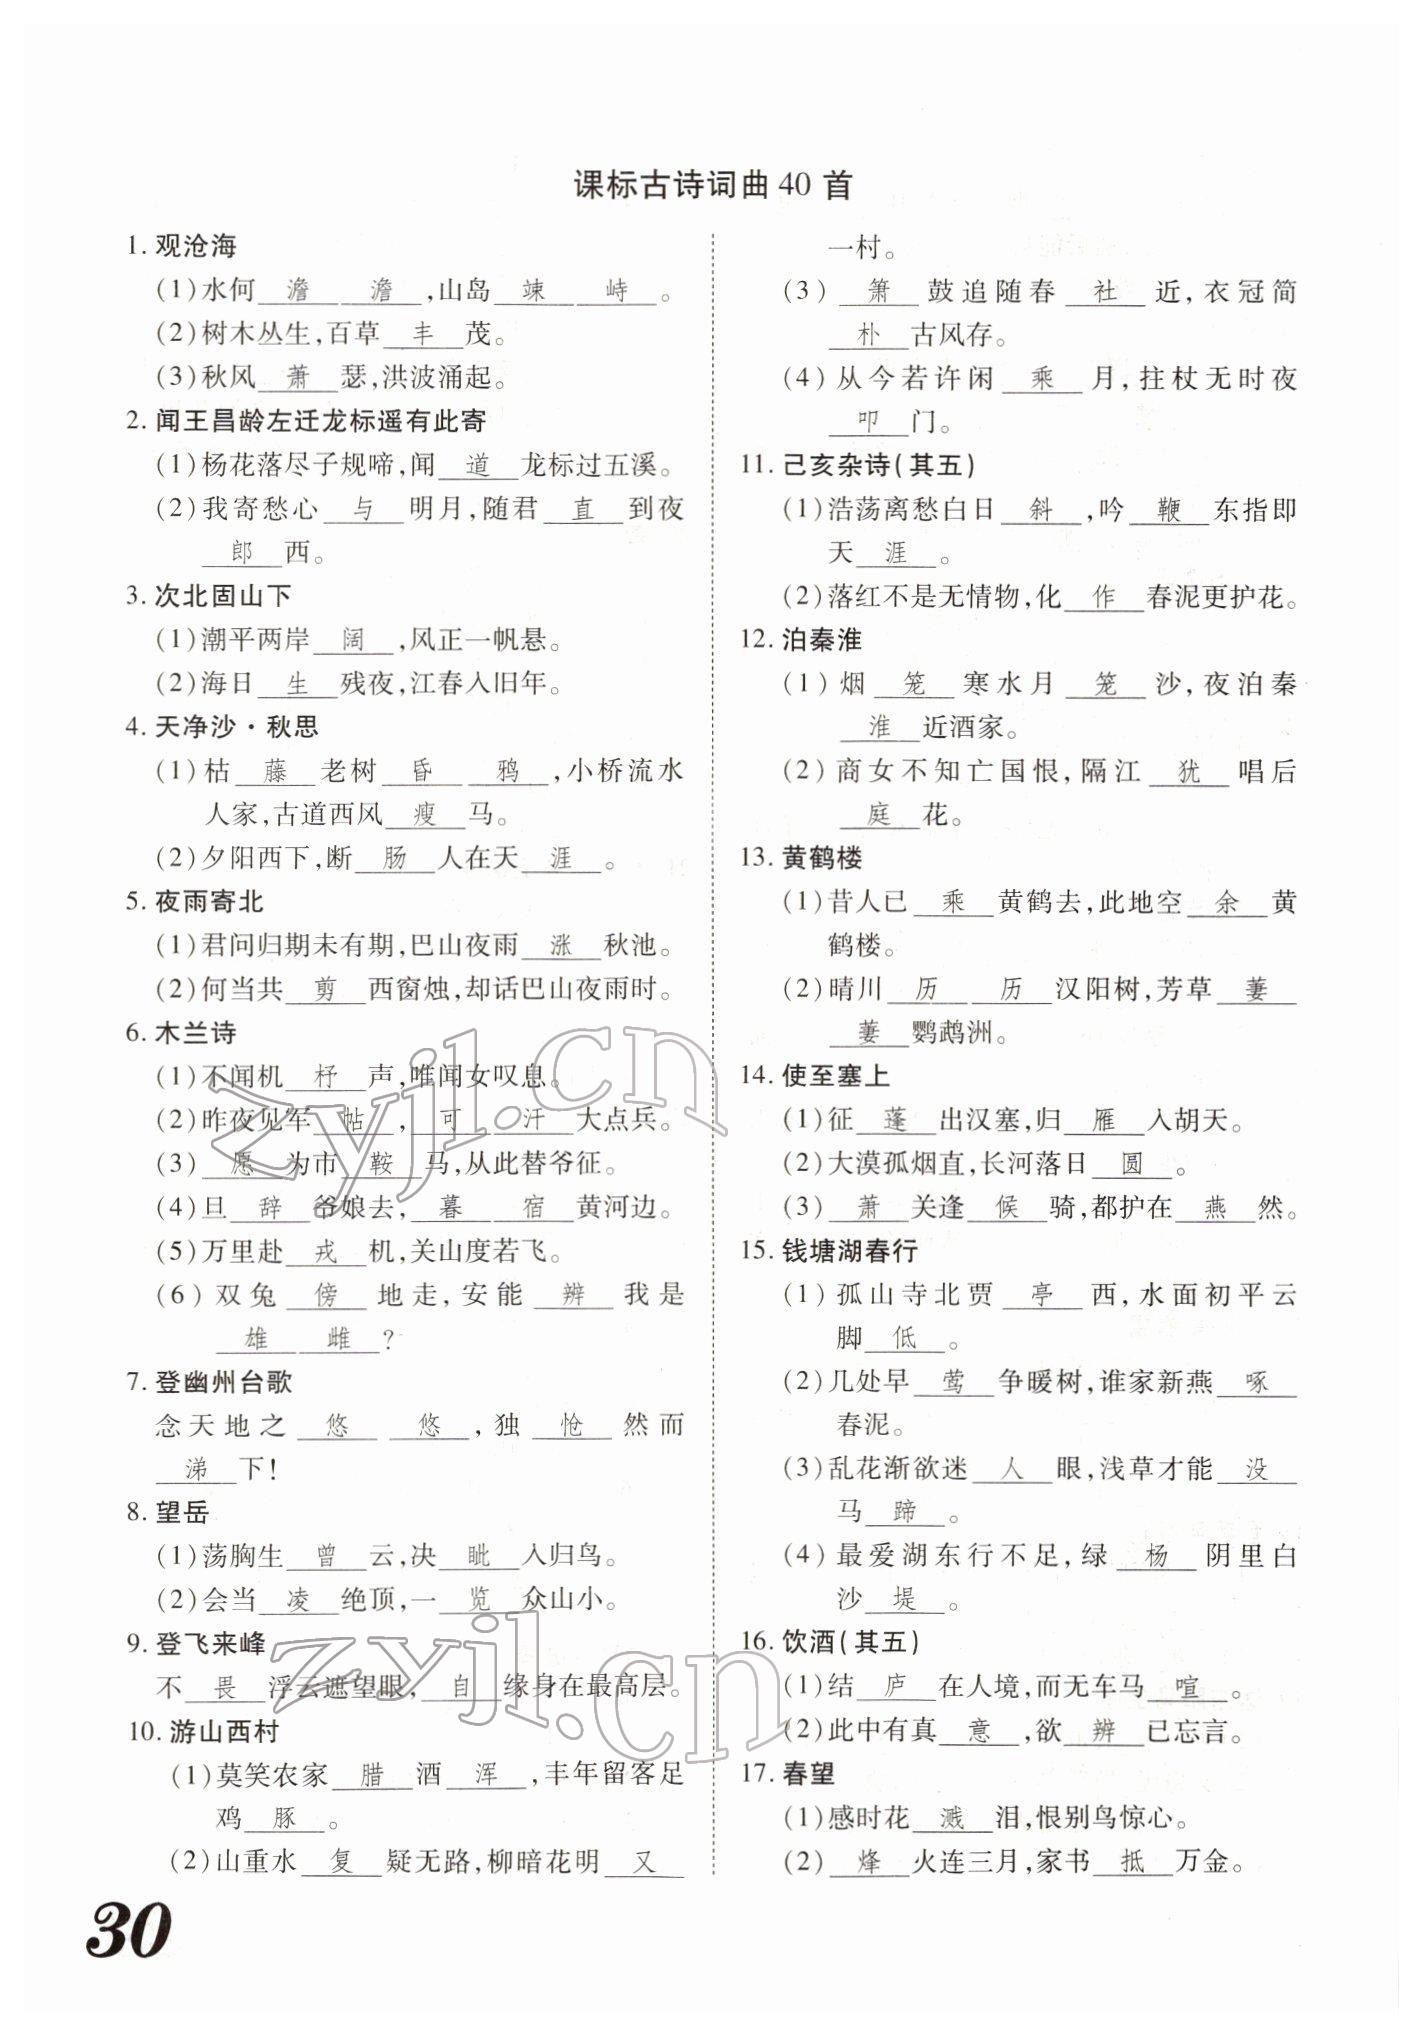 课标古诗词曲40首
1. 观沧海
(1)水何 澹 澹 ,山岛 竦 峙 。
(2)树木丛生,百草 丰 茂。
(3)秋风 萧 瑟,洪波涌起。
2. 闻王昌龄左迁龙标遥有此寄
(1)杨花落尽子规啼,闻 道 龙标过五溪。
(2)我寄愁心 与 明月,随君 直 到夜
郎 西。
3. 次北固山下
(1)潮平两岸 阔 ,风正一帆悬。
(2)海日 生 残夜,江春入旧年。
4. 天净沙·秋思
(1)枯 藤 老树 昏 鸦 ,小桥流水
人家,古道西风 瘦 马。
(2)夕阳西下,断 肠 人在天 涯 。
5. 夜雨寄北
(1)君问归期未有期,巴山夜雨 涨 秋池。
(2)何当共 剪 西窗烛,却话巴山夜雨时。
6. 木兰诗
(1)不闻机 杼 声,唯闻女叹息。
(2)昨夜见军 帖 , 可 汗 大点兵。
(3) 愿 为市 鞍 马,从此替爷征。
(4)旦 辞 爷娘去, 暮 宿 黄河边。
(5)万里赴 戎 机,关山度若飞。
(6)双兔 傍 地走,安能 辨 我是
雄 雌 ?
7. 登幽州台歌
念天地之 悠 悠 ,独 怆 然而
涕 下!
8. 望岳
(1)荡胸生 曾 云,决 眦 入归鸟。
(2)会当 凌 绝顶,一 览 众山小。
9. 登飞来峰
不 畏 浮云遮望眼, 自 缘身在最高层。
10. 游山西村
(1)莫笑农家 腊 酒 浑 ,丰年留客足
鸡 豚 。
(2)山重水 复 疑无路,柳暗花明 又
一村。
(3) 箫 鼓追随春 社 近,衣冠简
朴 古风存。
(4)从今若许闲 乘 月,拄杖无时夜
叩 门。
11. 己亥杂诗(其五)
(1)浩荡离愁白日 斜 ,吟 鞭 东指即
天 涯 。
(2)落红不是无情物,化 作 春泥更护花。
12. 泊秦淮
(1)烟 笼 寒水月 笼 沙,夜泊秦
淮 近酒家。
(2)商女不知亡国恨,隔江 犹 唱后
庭 花。
13. 黄鹤楼
(1)昔人已 乘 黄鹤去,此地空 余 黄
鹤楼。
(2)晴川 历 历 汉阳树,芳草 萋
萋 鹦鹉洲。
14. 使至塞上
(1)征 蓬 出汉塞,归 雁 入胡天。
(2)大漠孤烟直,长河落日 圆 。
(3) 萧 关逢 候 骑,都护在 燕 然。
15. 钱塘湖春行
(1)孤山寺北贾 亭 西,水面初平云
脚 低 。
(2)几处早 莺 争暖树,谁家新燕 啄
春泥。
(3)乱花渐欲迷 人 眼,浅草才能 没
马 蹄 。
(4)最爱湖东行不足,绿 杨 阴里白
沙 堤 。
16. 饮酒(其五)
(1)结 庐 在人境,而无车马 喧 。
(2)此中有真 意 ,欲 辨 已忘言。
17. 春望
(1)感时花 溅 泪,恨别鸟惊心。
(2) 烽 火连三月,家书 抵 万金。
30
zyjl.cn
zyjl.cn